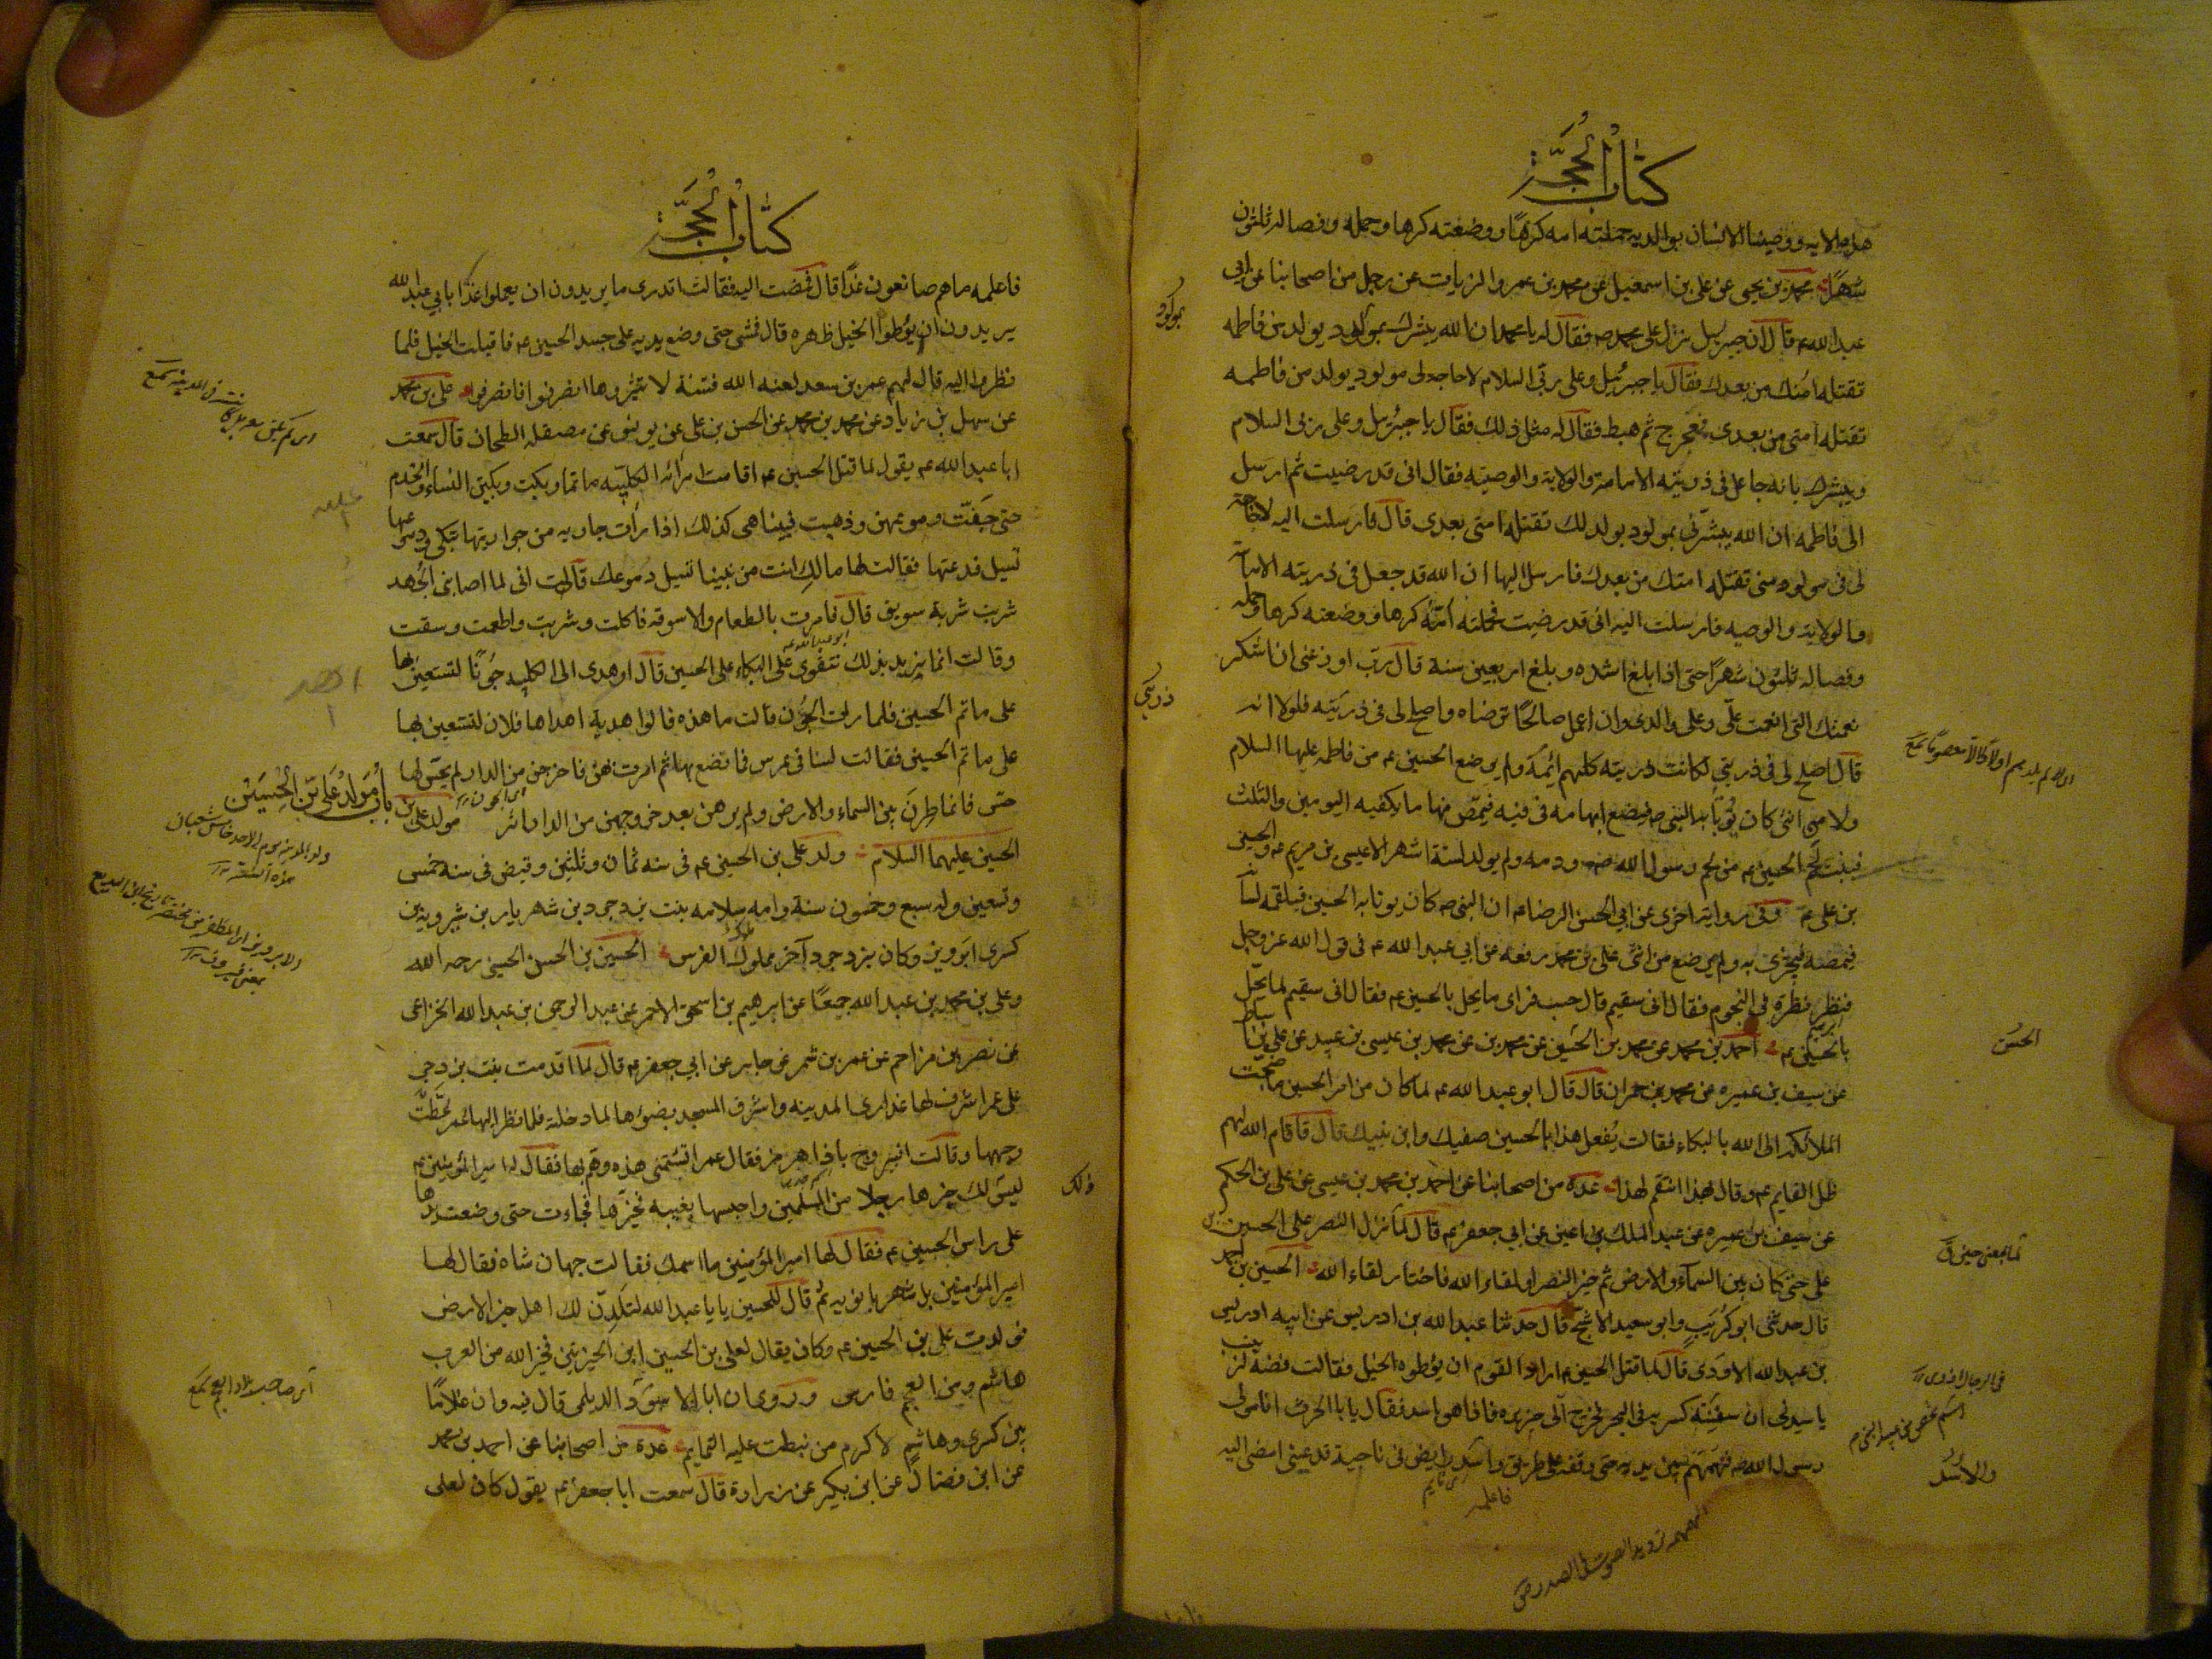 كتاب الحجة
هذه الاية ووصينا الانسان بوالديه حملته امه كرها ووضعته كرها وحمله وفصاله ثلثون
شهرا محمد بن يحيى عن علي بن اسمعيل عن محمد بن عمرو الزيات عن رجل من اصحابنا عن ابي
عبد الله ع قال ان جبرئيل نزل على محمد ص فقال له يا محمد ان الله يبشرك بمولود يولد من فاطمه
تقتله امتك من بعدك فقال يا جبرئيل وعلى ربي السلام لا حاجة لي في مولود يولد من فاطمه
تقتله امتي من بعدي فعرج ثم هبط فقال له مثل ذلك فقال يا جبرئيل وعلى ربي السلام
ويبشرك بانه جاعل في ذريته الامامة والولاية والوصية فقال اني قد رضيت ثم ارسل
الى فاطمه ان الله يبشرني بمولود يولد لك تقتله امتي بعدي قال فارسلت اليه لا حاجة
لي في مولود مني تقتله امتك من بعدك فارسل اليها ان الله قد جعل في ذريته الامامة
والولاية والوصيه فارسلت اليه اني قد رضيت فحملته امه كرها ووضعته كرها وحمله
وفصاله ثلثون شهرا حتى اذا بلغ اشده وبلغ اربعين سنة قال رب اوزعني ان اشكر
نعمتك التي انعمت علي وعلى والدي وان اعمل صالحا ترضاه واصلح لي في ذريته فلولا انه
قال اصلح لي في ذريتي لكانت ذريته كلهم ائمة ولم يرضع الحسين ع من فاطمه عليها السلام
ولا من انثى كان يؤتا به النبي ص فيضع ابهامه في فيه فيمص منها ما يكفيه اليومين والثلث
فنبت لحم الحسين ع من لحم رسول الله ص ودمه ولم يولد لستة اشهر الا عيسى بن مريم ع والحسين
بن علي ع وفي رواية اخرى عن ابي الحسن الرضا ع ان النبي ص كان يوتا به الحسين فيلقمه لسانه
فيمصه فيجتزئ به ولم يرضع من انثى علي بن محمد رفعه عن ابي عبد الله ع في قول الله عز وجل
فنظر نظرة في النجوم فقال اني سقيم قال حسب فراى ما يحل بالحسين ع فقال اني سقيم لما يحل
بالحسين ع احمد بن محمد عن محمد بن الحسين عن محمد بن عيسى بن عبيد عن علي بن اسباط
عن سيف بن عميره عن محمد بن حمران قال قال ابو عبد الله ع لما كان من امر الحسين ما كان ضجت
الملائكة الى الله بالبكاء فقالت يفعل هذا بالحسين صفيك وابن نبيك قال فاقام الله لهم
ظل القايم ع وقال بهذا انتقم لهذا عدة من اصحابنا عن احمد بن محمد بن عيسى عن علي بن الحكم
عن سيف بن عميره عن عبد الملك بن اعين عن ابي جعفر ع قال لما نزل النصر على الحسين بن
علي حتى كان بين السماء والارض ثم خير النصر او لقاء الله فاختار لقاء الله الحسين بن احمد
قال حدثني ابو كريب وابو سعيد الاشج قال حدثنا عبد الله بن ادريس عن ابيه ادريس
بن عبد الله الاودي قال لما قتل الحسين ع اراد القوم ان يوطوه الخيل فقالت فضة لزينب
يا سيدتي ان سفينة كسر به في البحر فخرج الى جزيره فاذا هو باسد فقال يا ابا الحرث انا مولى
رسول الله ص فهمهم بين يديه حتى وقفه على الطريق واسد رابض في ناحية فدعيني امضي اليه
فاعلمه
الهمهمه ترديد الصوت في الصدر ص
بمولود
ذريتي
الحسن
لما بمعنى حين ق
والاسد
كتاب الحجة
فاعلمه ما هم صانعون غدا قال فمضت اليه فقالت اتدري ما يريدون ان يعملوا غدا بابي عبد الله
يريدون ان يوطوا الخيل ظهره قال فمشى حتى وضع يديه على جسد الحسين ع فاقبلت الخيل فلما
نظروا اليه قال لهم عمر بن سعد لعنه الله فتنة لا تثيروها انصرفوا فانصرفوا علي بن محمد
عن سهل بن زياد عن محمد بن محمد عن الحسن بن علي عن يونس عن مصقلة الطحان قال سمعت
ابا عبد الله ع يقول لما قتل الحسين ع اقامت امراته الكلبيه ماتما وبكت وبكين النساء والخدم
حتى جفت دموعهن وذهبت فبينا هي كذلك اذا رات جاريه من جواريها تبكي ودموعها
تسيل فدعتها فقالت لها مالك انت من بيننا تسيل دموعك قالت اني لما اصابني الجهد
شربت شربة سويق قال فامرت بالطعام والاسوقه فاكلت وشربت واطعمت وسقت
وقالت انما نريد بذلك نتقوى على البكاء على الحسين قال واهدى الى الكلبيه جونا لتستعين بها
على ماتم الحسين فلما رات الجون قالت ما هذه قالوا هدية اهداها فلان لتستعين بها
على ماتم الحسين فقالت لسنا في عرس فما نصنع بها ثم امرت بهن فاخرجن من الدار فلم يحس لها
حس فانما طرن بين السماء والارض ولم ير لهن بعد خروجهن من الدار اثر مولد علي بن
الحسين عليهما السلام ولد علي بن الحسين ع في سنه ثمان وثلثين وقبض في سنه خمس
وتسعين وله سبع وخمسون سنة وامه سلامه بنت يزدجرد بن شهريار بن شيرويه بن
كسرى ابرويز وكان يزدجرد آخر ملوك الفرس الحسين بن الحسن الحسيني رحمه الله
وعلي بن محمد بن عبد الله جميعا عن ابرهيم بن اسحق الاحمر عن عبد الرحمن بن عبد الله الخزاعي
عن نصر بن مزاحم عن عمرو بن شمر عن جابر عن ابي جعفر ع قال لما اقدمت بنت يزدجرد
على عمر اشرف لها عذارى المدينه واشرق المسجد بضوئها لما دخلته فلما نظر اليها عمر غطت
وجهها وقالت اف بيروج باذا هرمز فقال عمر اتشتمني هذه وهم بها فقال له امير المؤمنين ع
ليس لك خيرها رجلا من المسلمين واحسبها بفيئه فخيرها فجاءت حتى وضعت يدها
على راس الحسين ع فقال لها امير المؤمنين ما اسمك فقالت جهان شاه فقال لها
امير المؤمنين بل شهربانويه ثم قال للحسين يا با عبد الله لتلدن لك منها خير اهل الارض
فولدت علي بن الحسين ع وكان يقال لعلي بن الحسين ابن الخيرتين فخيرة الله من العرب
هاشم ومن العجم فارس وروي ان ابا الاسود الديلمي قال فيه وان غلاما
بين كسرى وهاشم لاكرم من نيطت عليه التمايم عدة من اصحابنا عن احمد بن محمد
عن ابن فضال عن ابن بكير عن زرارة قال سمعت ابا جعفر ع يقول كان لعلي
باب مولد علي بن الحسين
ذلك